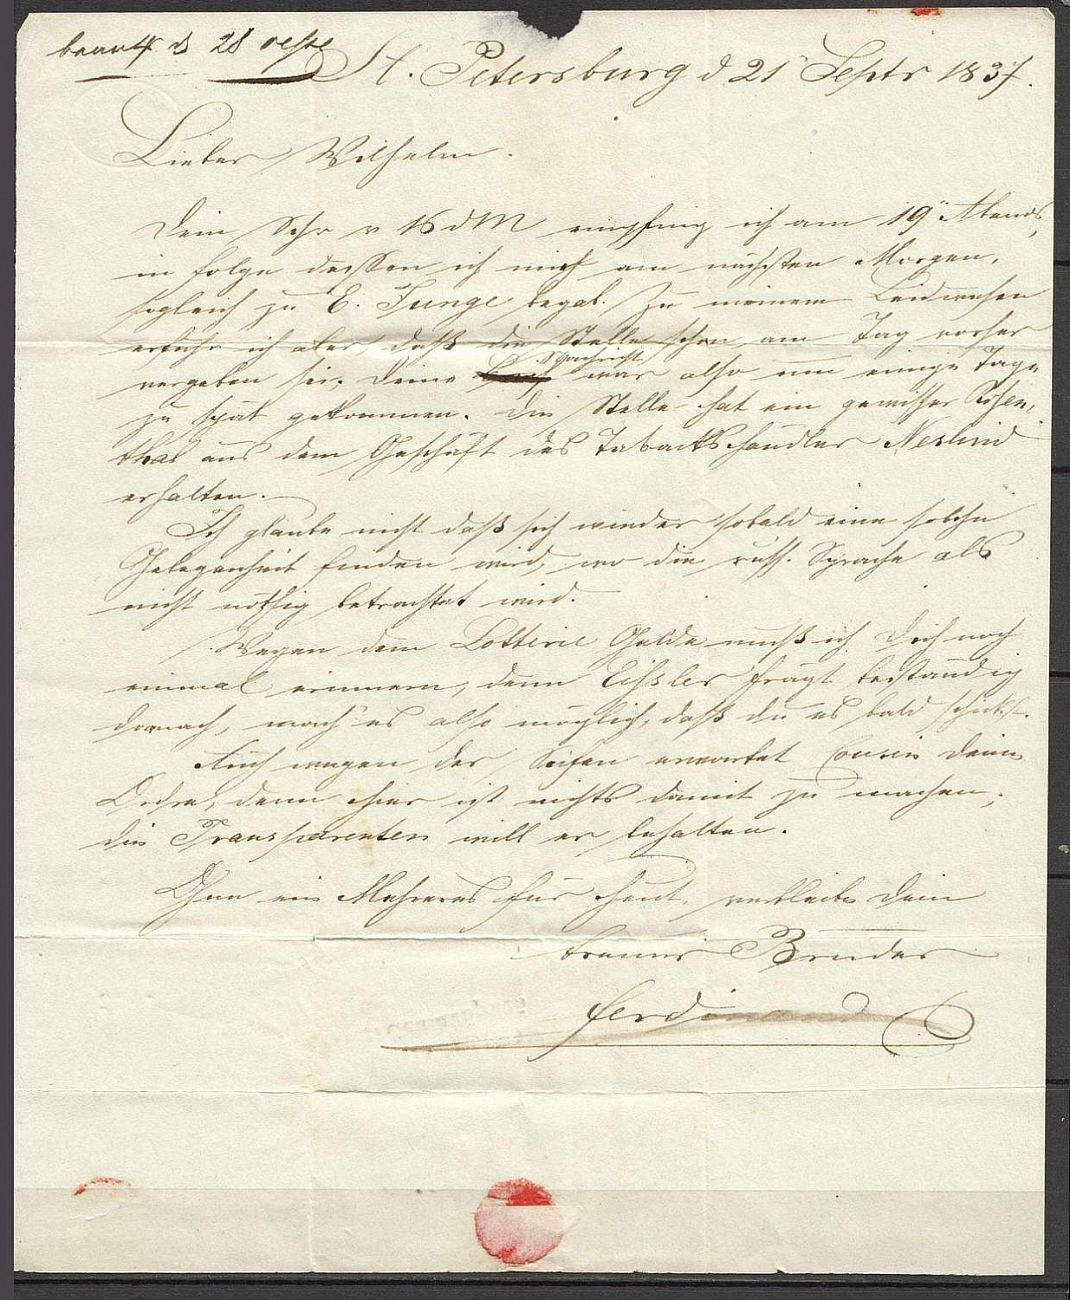 beantw d 28
St. Petersburg d 21 Septr 1837.
Lieber Wilhelm.
Dein Schr v 16 d M empfing ich am 19n Abends,
in folge dessen ich mich am nächsten Morgen,
sogleich zu E. Junge begab. Zu meinem Leidwesen
erfuhr ich aber, daß die Stelle schon am Tag vorher
vergeben sei. Deine Nachricht war also um einige Tage
zu spät gekommen. Die Stelle hat ein gewisser Rosen-
thal aus dem Geschäft des Tabackshändlers
erhalten.
Ich glaube nicht daß sich wieder sobald eine solche
Gelegenheit finden wird, wo die russ. Sprache als
nicht nöthig betrachtet wird.
Wegen dem Lotterie Gelde muß ich Dich noch
einmal erinnern, denn Eißler frägt beständig
darnach, mach es also möglich, daß du es bald schickst.
Auch wegen der Seifen erwartet Cousin Deine
Ordre, denn hier ist nichts damit zu machen,
die Transparenten will er behalten.
Ohne ein Mehreres für heut, verbleibe Dein
treuer Bruder
Ferdinand